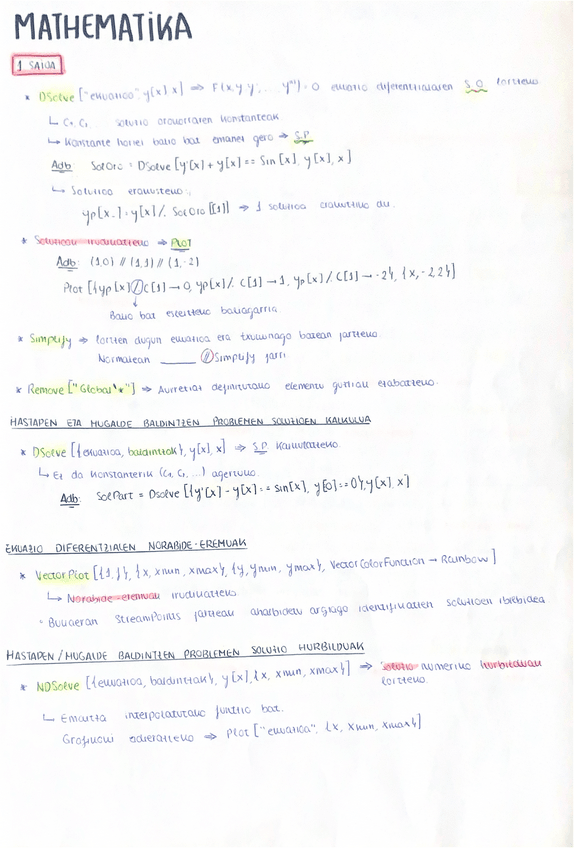 MATHEMATIKA
1. SAIOA
* DSolve ["ekuazioa", y[x], x] ⇒ F(x, y, y', ... yⁿ) = 0 ekuazio diferentzialaren S.O. lortzeko.
↳ C₁, C₂, ... soluzio orokorraren konstanteak.
↳ Konstante horiei balio bat emanez gero ⇒ S.P.
Adb: SolOro = DSolve [y'[x] + y[x] == Sin [x], y[x], x]
↳ Soluzioa erakusteko:
yp[x_] = y[x] /. SolOro [[1]] ⇒ 1 soluzioa erakutsiko du.
* Soluzioak irudikatzeko ⇒ Plot
Adb: (1,0) // (1,1) // (1,-2)
Plot [{yp[x] /. C[1] → 0, yp[x] /. C[1] → 1, yp[x] /. C[1] → -2}, {x, -2, 2}]
Balio bat esleitzeko baliagarria.
* Simplify ⇒ lortzen dugun ekuazioa era txukunago batean jartzeko.
Normalean _____ // Simplify jarri.
* Remove ["Global`*"] ⇒ Aurretiaz definitutako elementu guztiak ezabatzeko.
HASTAPEN ETA MUGALDE BALDINTZEN PROBLEMEN SOLUZIOEN KALKULUA
* DSolve [{ekuazioa, baldintzak}, y[x], x] ⇒ S.P. kalkulatzeko.
↳ Ez da konstanterik (C₁, C₂, ...) agertuko.
Adb: SolPart = DSolve [{y'[x] - y[x] == sin[x], y[0] == 0}, y[x], x]
EKUAZIO DIFERENTZIALEN NORABIDE-EREMUAK
* VectorPlot [{1, f}, {x, xmin, xmax}, {y, ymin, ymax}, VectorColorFunction → Rainbow]
↳ Norabide-eremuak irudikatzeko.
· Bukaeran StreamPoints jartzeak ahalbidetu argiago identifikatzen soluzioen ibilbidea.
HASTAPEN/MUGALDE BALDINTZEN PROBLEMEN SOLUZIO HURBILDUAK
* NDSolve [{ekuazioa, baldintzak}, y[x], {x, xmin, xmax}] ⇒ soluzio numeriko hurbilduak
lortzeko.
↳ Emaitza interpolatutako funtzio bat.
Grafikoki adierazteko ⇒ Plot ["ekuazioa", {x, xmin, xmax}]